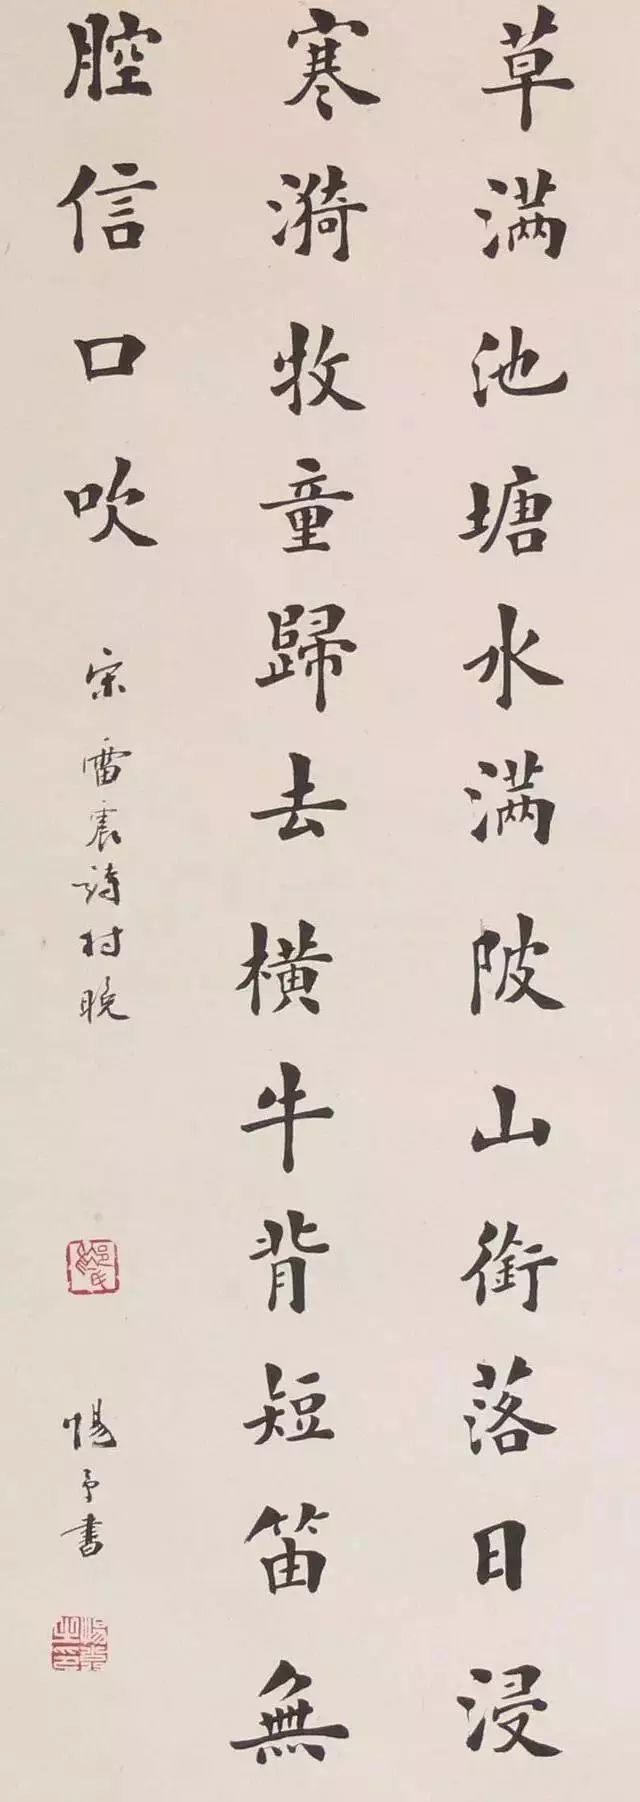 草满池塘水满陂山銜落日浸
寒漪牧童歸去横牛背短笛無
腔信口吹
宋雷震詩村晚